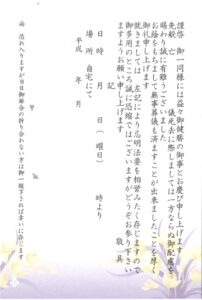 謹啓 御一同様には益々御健勝の御事とお慶び申し上げます
先般 亡 儀死去に際しましては一方ならぬ御配慮を
賜わり誠に有難うございました
お陰をもちまして葬儀も済ますことが出来ましたことを厚く
御礼申し上げます
就きましては 左記により忌明法要を相営みたく存じますので
御多用のところ誠に恐縮ではございますがどうぞお参り下さい
ますようお願い申し上げます
敬具
記
日時 月 日( 曜日) 時より
場所 自宅にて
平成 年 月
〒
℡
尚 恐れ入りますが当日御都合の折り合わない方は御一報下されば幸いに存じます